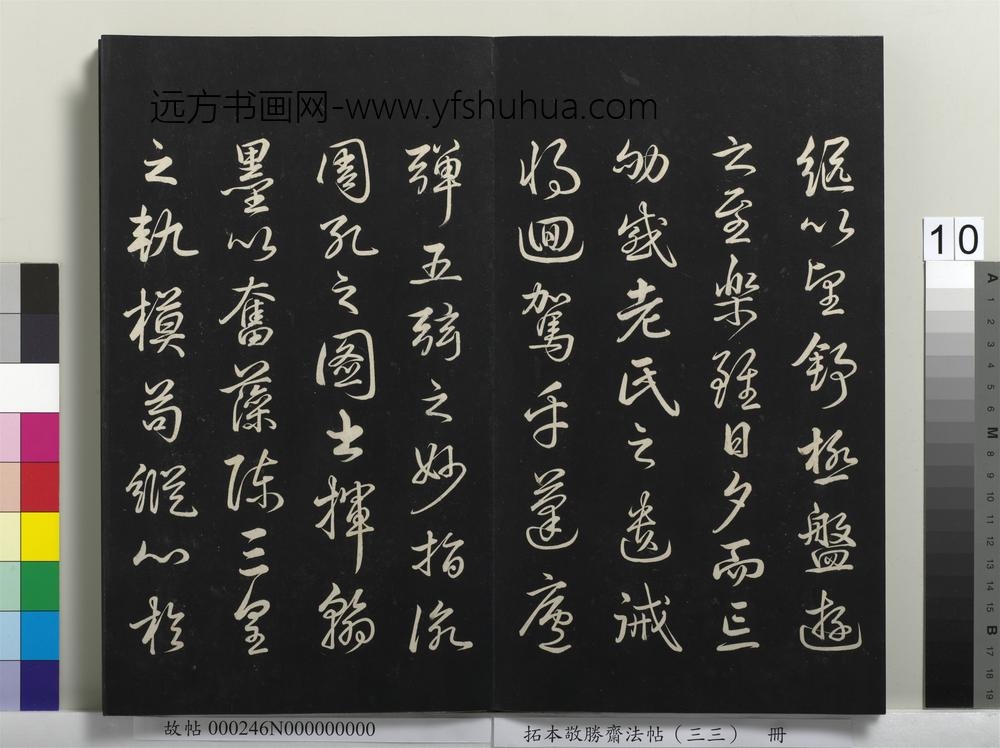 远方书画网-www.yfshuhua.com
繼以望舒極盤遊
之至樂雖日夕而亡
劬感老氏之遺誡
將迴駕乎蓬廬
彈五弦之妙指詠
周孔之圖書揮翰
墨以奮藻陳三皇
之軌模苟縱心於
10
A 1 2 3 4 5 6 M 8 9 10 11 12 13 14 15 B 17 18 19
故帖 000246N000000000
拓本敬勝齋法帖（三三） 冊